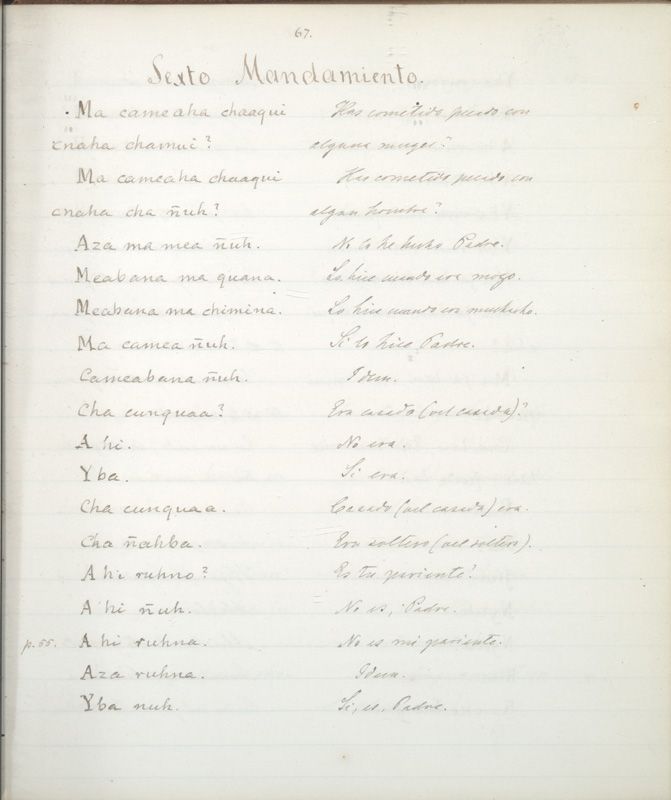 67.
Sexto Mandamiento.
Ma cameaha chaaqui Has cometido pecado con
cnaha chamui? alguna muger?
Ma cameaha chaaqui Has cometido pecado con
cnaha cha ñuh? algun hombre?
Aza ma mea ñuh. No lo he hecho Padre.
Meabana ma guana. Lo hice cuando era mozo.
Meabana ma chimina. Lo hice cuando era muchacho.
Ma camea ñuh. Si lo hice Padre.
Cameabana ñuh. Idem.
Cha cunquaa? Era casado (vel casada)?
A hi. No era.
Yba. Si era.
Cha cunquaa. Casado (vel casada) era.
Cha ñahba. Era soltero (vel soltera).
A hi ruhno? Es tu pariente?
A hi ñuh. No es, Padre.
p. 55. A hi ruhna. No es mi pariente.
Aza ruhna. Idem.
Yba nuh. Si, es, Padre.